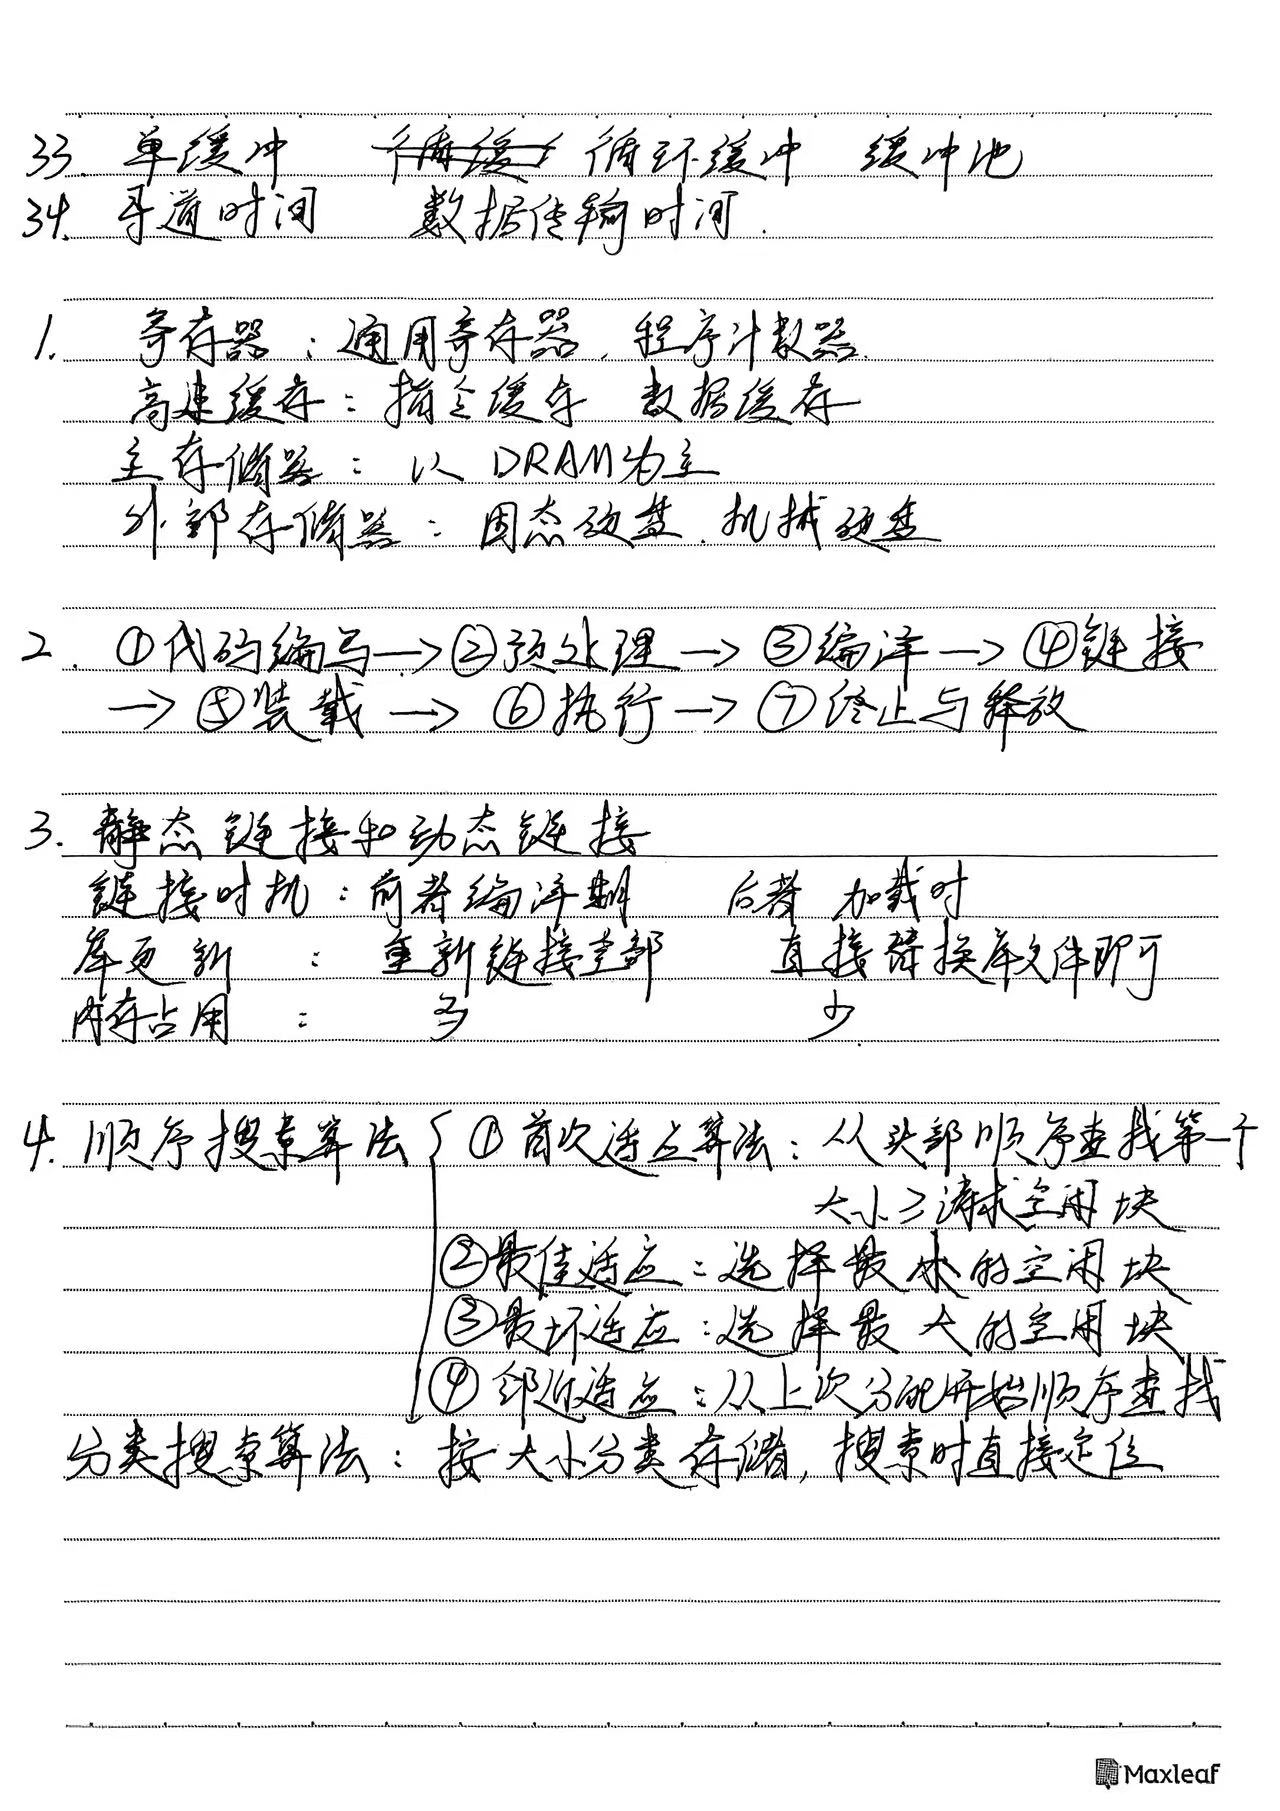 33. 单缓冲 循环缓冲 缓冲池
34. 寻道时间 数据传输时间.
1. 寄存器：通用寄存器，程序计数器.
高速缓存：指令缓存 数据缓存
主存储器：以DRAM为主
外部存储器：固态硬盘，机械硬盘
2. ①代码编写→②预处理→③编译→④链接
→⑤装载→⑥执行→⑦终止与释放
3. 静态链接和动态链接
链接时机：前者编译期 后者 加载时
库更新：重新链接全部 直接替换库文件即可
内存占用：多 少
4. 顺序搜索算法 ①首次适应算法：从头部顺序查找第一个
大小≥请求空闲块
②最佳适应：选择最小的空闲块
③最坏适应：选择最大的空闲块
④邻近适应：从上次分配开始顺序查找
分类搜索算法：按大小分类存储，搜索时直接定位
Maxleaf